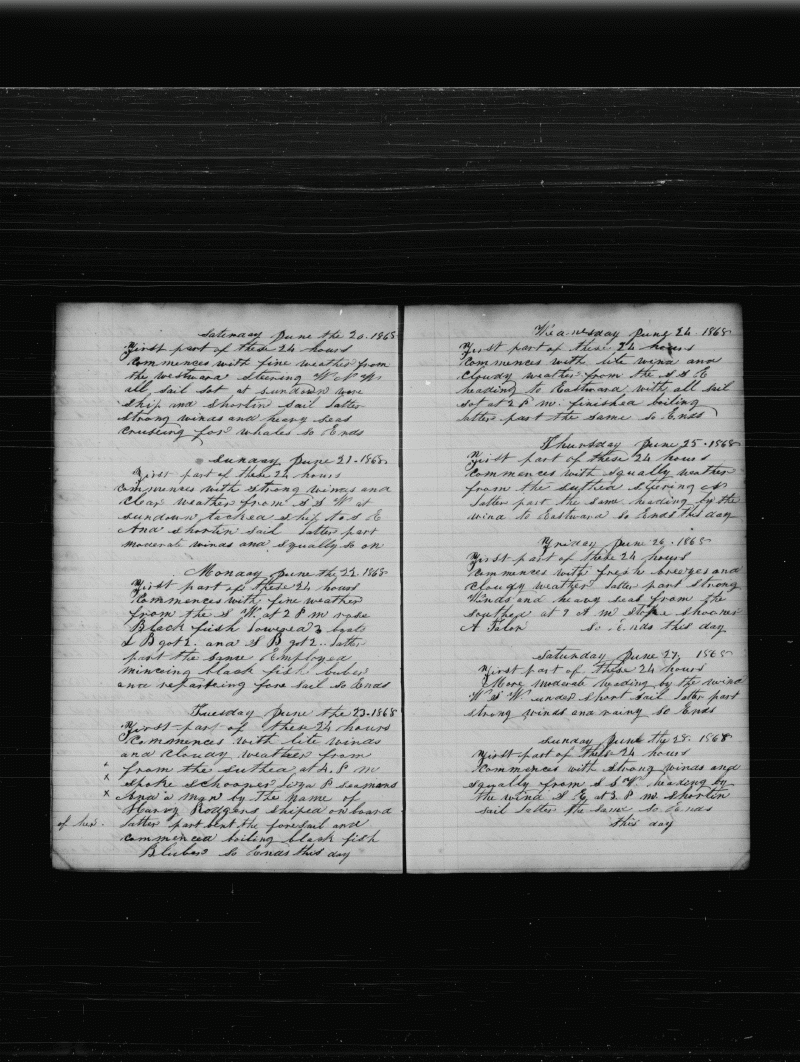 Saturday June the 20. 1868
First part of these 24 hours
Commences with fine weather from
the westward steering W N W
all sail sot at sundown wore
ship and shortin sail latter
strong winds and heavy seas
cruising for whales so Ends
Sunday June 21. 1868
First part of these 24 hours
commences with strong winds and
clear weather from S S W at
sundown tacked ship to S E
And shortin sail latter part
moderate winds and squally so on
Monday June the 22. 1868
First part of these 24 hours
Commences with fine weather
from the S W. at 2 P M rase
Black fish lowered 3 boats
L B got 2. and S B got 2. latter
part the same Employed
minceing black fish buber
and repaireing fore sail so Ends
Tuesday June the 23. 1868
First part of these 24 hours
Commences with lite winds
and cloudy weather from
x from the suthed at 4. P M
x spoke Schooner P seamans
x And a man by the name of
Harry Rodgers shiped on board
of her. latter part bent the foresail and
commenced boiling black fish
Bluber so Ends this day
Weadnesday June 24. 1868
First part of these 24 hours
Commences with lite wind and
cloudy weather from the S S E
heading to Eastward with all sail
sot at 2 P M. finished boiling
latter part the same so Ends
Thursday June 25. 1868
First part of these 24 hours
Commences with squally weather
from the suthed steering
latter part the same heading by the
wind to Eastward so Ends this day
Friday June 26. 1868
First part of these 24 hours
Commences with fresh breezes and
cloudy weather latter part strong
Winds and heavy seas from the
southed at 9 A m spoke shooner
A Taler so Ends this day
Saturday June 27. 1868
First part of these 24 hours
More moderate heading by the wind
W S W under short sail latter part
strong winds and rainy so Ends
Sunday June the 28. 1868
First part of these 24 hours
Commences with strong winds and
squally from S S W. heading by
the wind S E, at 2. P m. shortin
sail latter the same so Ends
this day